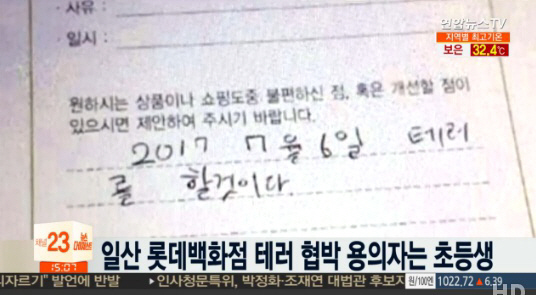 연합뉴스TV
지역별 최고기온
보은 32.4℃
· 사유 :
· 일시 :
원하시는 상품이나 쇼핑도중 불편하신 점, 혹은 개선할 점이
있으시면 제안하여 주시기 바랍니다.
2017 7월 6일 테러
를 할것이다.
23
일산 롯데백화점 테러 협박 용의자는 초등생
15:07
자르기" 발언에 반발 ▶ 인사청문특위, 박정화·조재연 대법관 후보자
원/100엔 1022.72 ▲ 6.39
HD